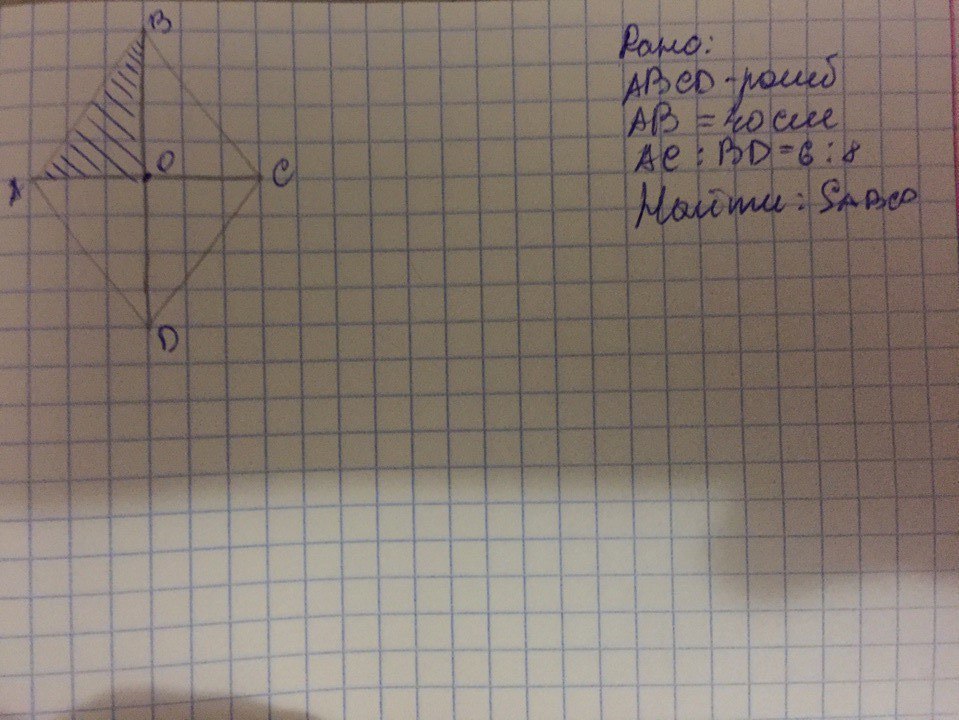 B
A
O
C
D
Дано:
ABCD - ромб
AB = 40 см
AC : BD = 6 : 8
Найти: SABCD